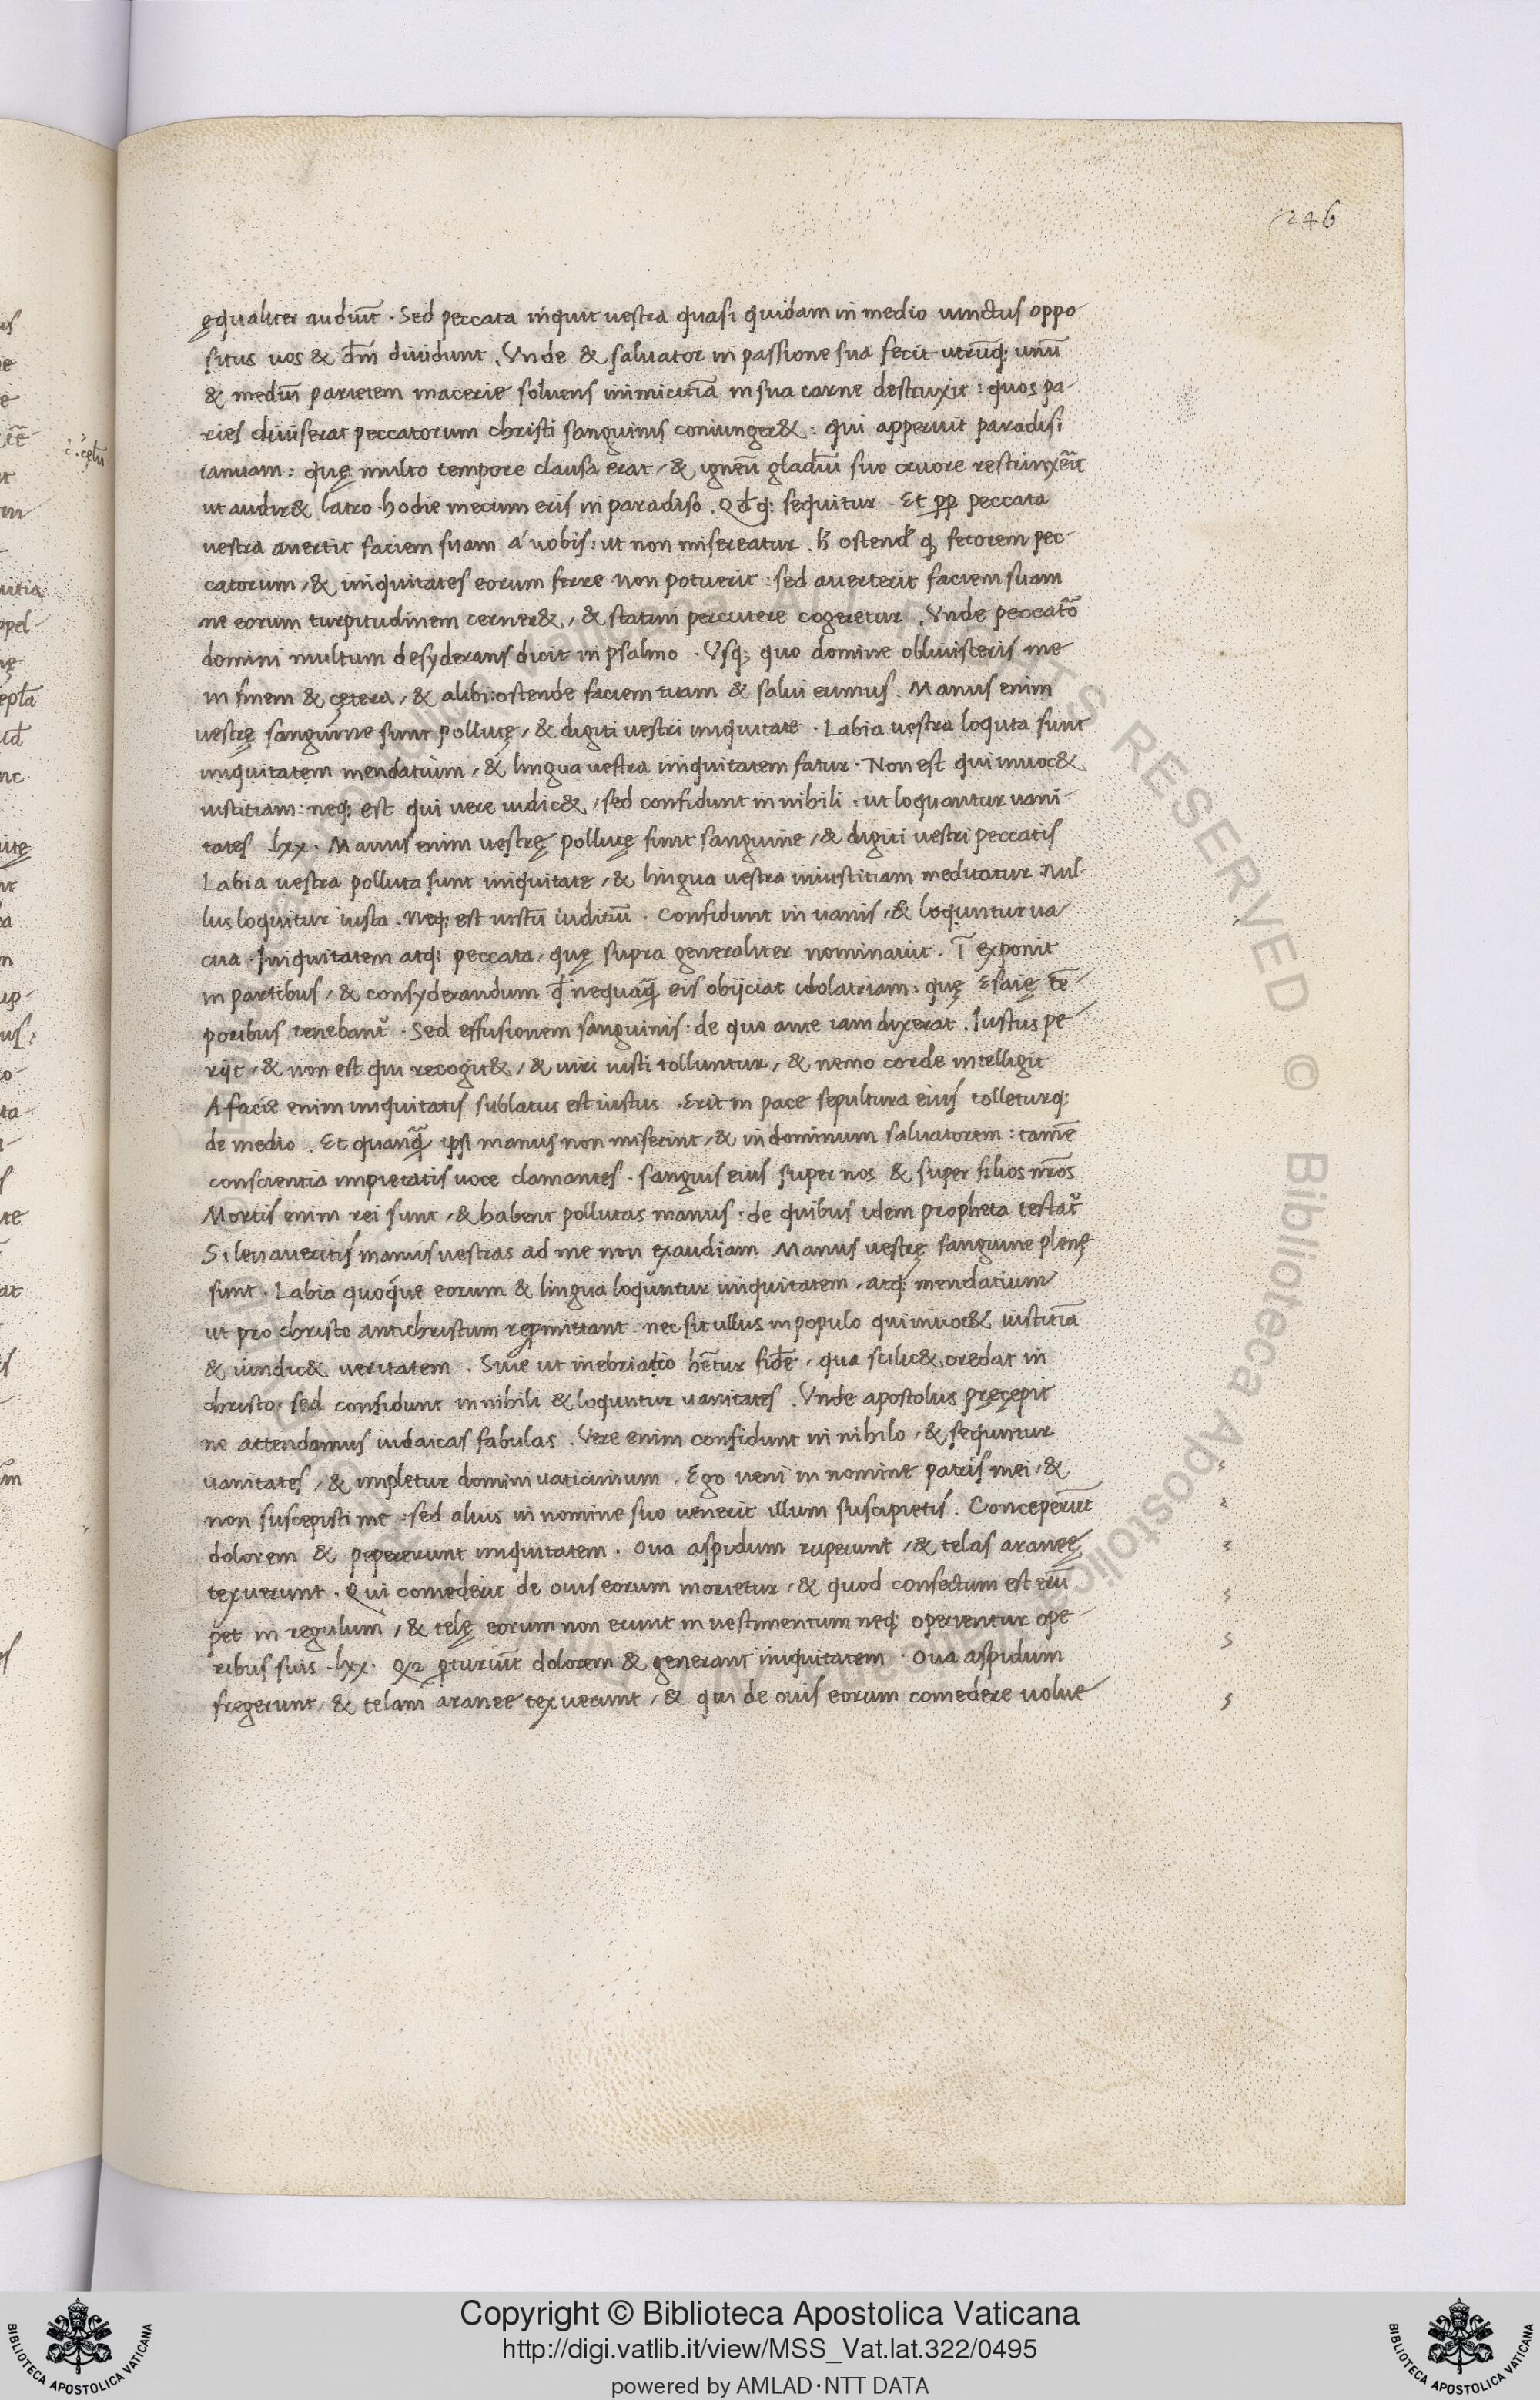 246
ęqualiter audiūt · Sed peccata inquit vestra quasi quidam in medio uinctus oppo-
situs uos & dm̄ diuidunt . Vnde & saluator in passione sua fecit utrūq; unū
& mediū parietem macerie soluens inimicitiā in sua carne destruxit : quos pa-
ries diuiserat peccatorum christi sanguinis coniunger& : qui apperuit paradisi
ianuam : quę multo tempore clausa erat / & igneū gladiū suo cruore restrinxēit
ut audir& latro hodie mecum eris in paradiso . Qđq; sequitur . Et pp peccata
uestra auertit faciem suam á uobis : ut non misereatur . h̄ ostendꝰ ꝙ fetorem pec-
catorum / & iniquitates eorum ferre non potuerit : sed auerterit faciem suam
ne eorum turpitudinem cerner& / & statim percutere cogeretur . Vnde peccatō
domini multum desyderans dicit in psalmo . Vsq; quo domine obliuisteris me
in finem & cętera / & alibi : ostende faciem tuam & salui erimus . Manus enim
uestrę sanguine sunt pollutę / & digiti uestri iniquitate . Labia uestra loquta sunt
iniquitatem mendatium / & lingua uestra iniquitatem fatur . Non est qui inuoc&
iustitiam : neq; est qui uere iudic& / sed confidunt in nihili : ut loquantur uani-
tates lxx . Manus enim uestrę pollutę sunt sanguine / & digiti uestri peccatis
Labia uestra polluta sunt iniquitate / & lingua uestra iniustitiam meditatur . Nul-
lus loquitur iusta . Neq; est iustū iuditiū . Confidunt in uanis / & loquntur ua-
cua . Iniquitatem atq; peccata / quę supra generaliter nominauit . ī exponit
in partibus / & consyderandum ꝙ nequaq̄ eis obijciat idolatriam : quę Esaię tē-
poribus tenebant᷑ . Sed effusionem sanguinis : de quo ante iam dixerat . Iustus pe-
rijt / & non est qui recogit& / & uiri iusti tolluntur / & nemo corde intelligit
A facie enim iniquitatis sublatus est iustus . Erit in pace sepultura eius tolleturq;
de medio . Et quanq̄ ipsi manus non miserint / & in dominum saluatorem : tamē
conscientia impietatis uoce clamantes . sanguis eius super nos & super filios nr̄os
Mortis enim rei sunt / & habent pollutas manus : de quibus idem propheta testat᷑
Si leuaueritis manus uestras ad me non exaudiam . Manus uestrę sanguine plenę
sunt . Labia quoque eorum & lingua loquntur iniquitatem / atq; mendatium
ut pro christo antichristum repmittant : nec sit ullus in populo qui inuoc& iustitiā
& iundic& ueritatem . Siue ut inebriatio hētur fidē / qua scilic& credat in
christo . sed confidunt in nihili & loquntur uanitates . Vnde apostolus pręcępit
ne attendamus iudaicas fabulas . Vere enim confidunt in nihilo / & sequntur
uanitates / & impletur domini uaticinium . Ego ueni in nomine patris mei / &
non suscepisti me : sed alius in nomine suo uenerit illum suscipietis . Conceperūt
dolorem & pepererunt iniquitatem . Oua aspidum ruperunt / & telas araneę
texuerunt . Qui comederit de ouis eorum morietur / & quod confectum est erū-
pet in regulum / & telę eorum non erunt in uestimentum neq; operientur ope-
ribus suis . lxx . Qꝛ pturiūt dolorem & generant iniquitatem . Oua aspidum
fregerunt / & telam aranee texuerunt / & qui de ouis eorum comedere uolue-
Copyright © Biblioteca Apostolica Vaticana
http://digi.vatlib.it/view/MSS_Vat.lat.322/0495
powered by AMLAD·NTT DATA
BIBLIOTECA APOSTOLICA VATICANA
BIBLIOTECA APOSTOLICA VATICANA